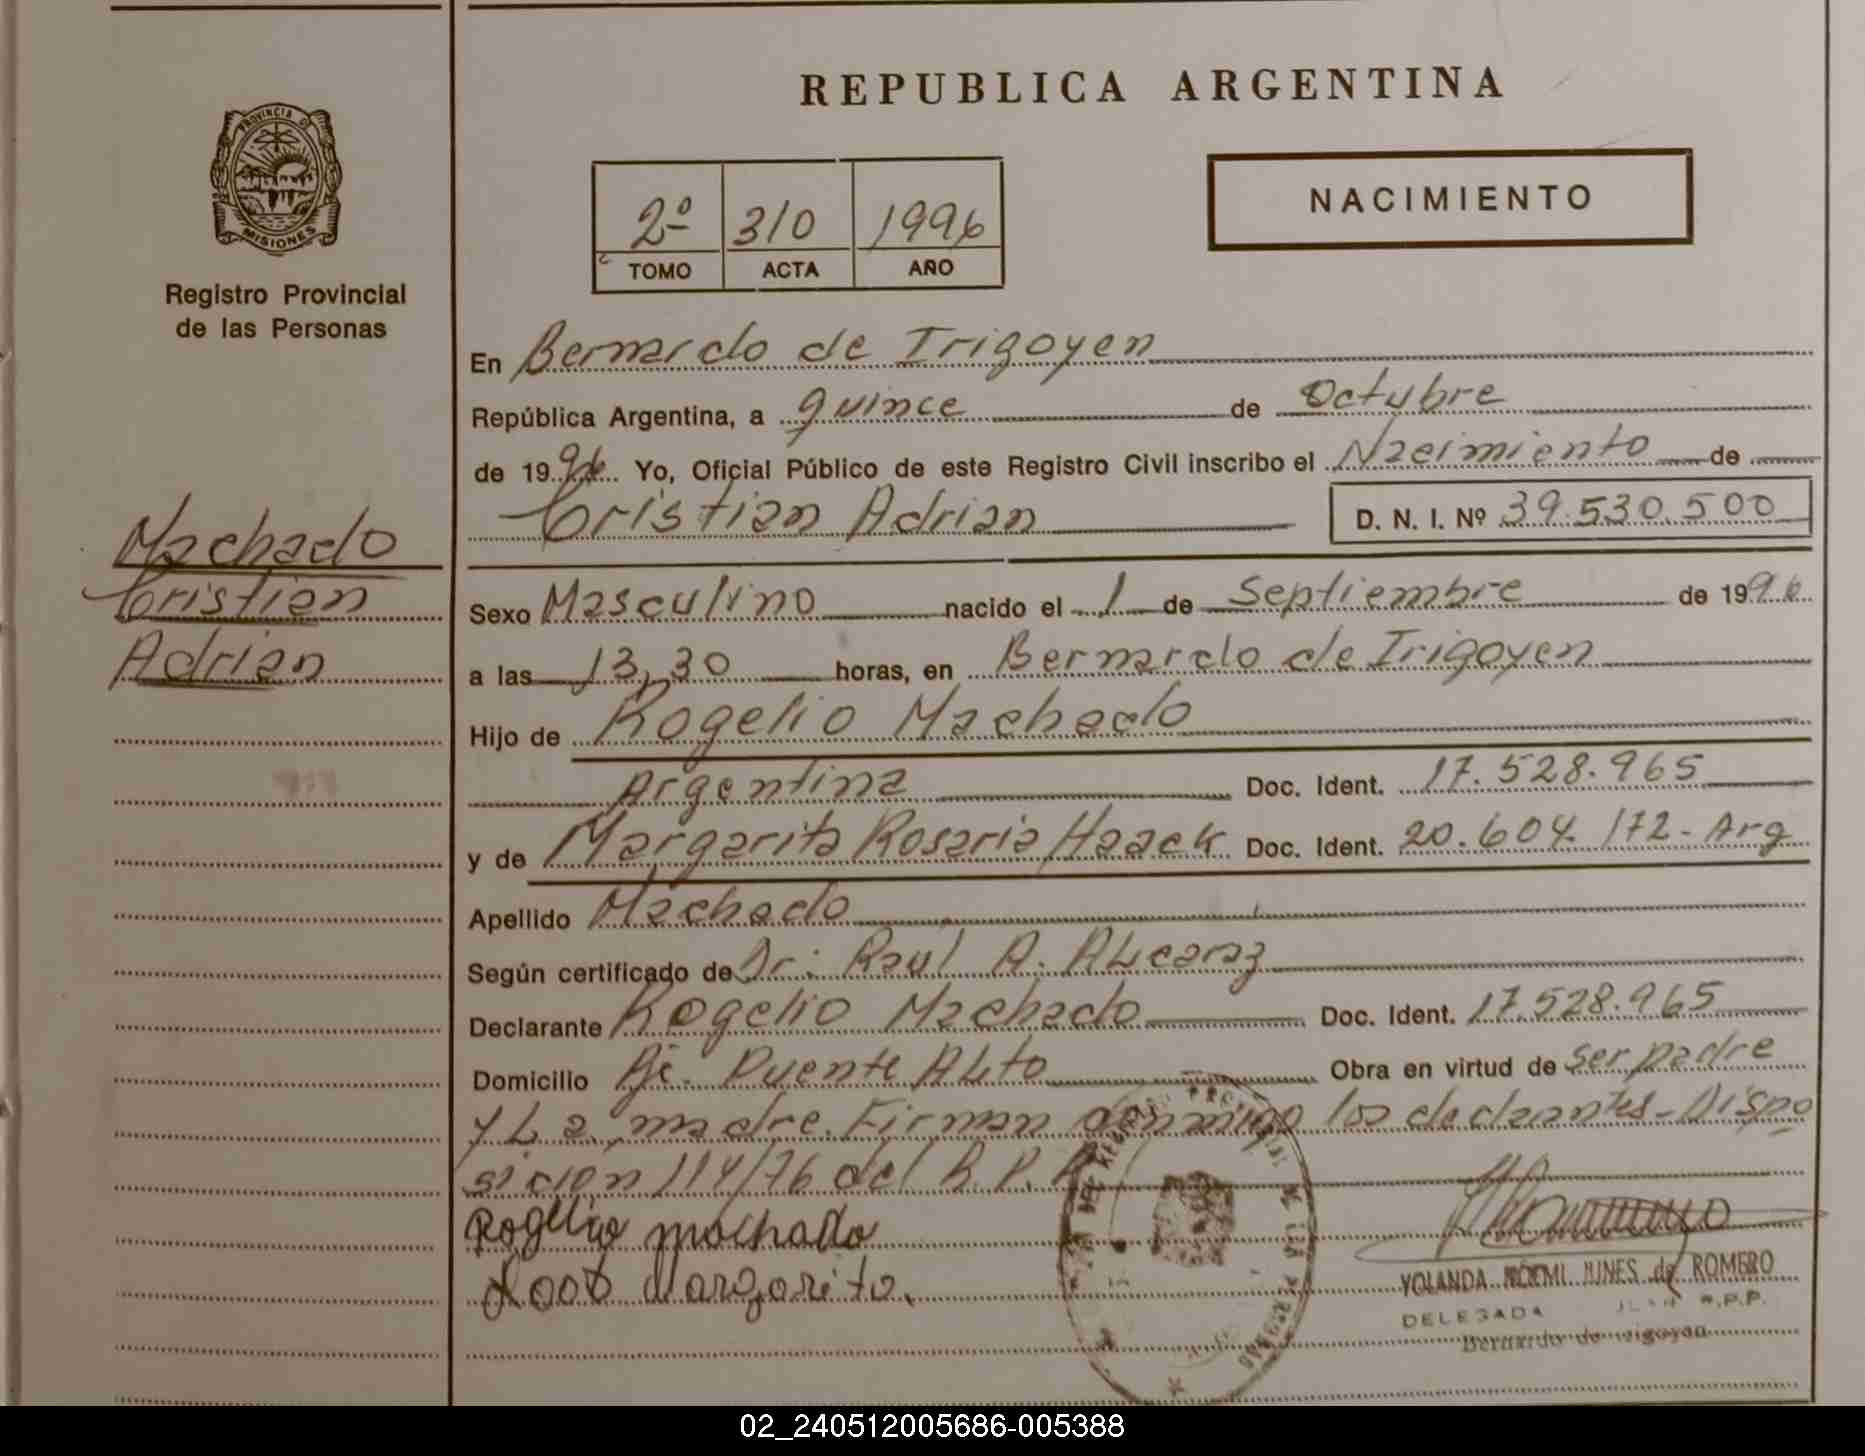 REPUBLICA ARGENTINA
PROVINCIA D
MISIONES
Registro Provincial
de las Personas
2º 310 1996
TOMO ACTA AÑO
NACIMIENTO
En Bernardo de Irigoyen
República Argentina, a quince de Octubre
de 1996 Yo, Oficial Público de este Registro Civil inscribo el Nacimiento de
Cristian Adrian D. N. I. Nº 39.530.500
Machado
Cristian
Adrian
Sexo Masculino nacido el 1 de Septiembre de 1996
a las 13,30 horas, en Bernardo de Irigoyen
Hijo de Rogelio Machado
Argentina Doc. Ident. 17.528.965
y de Margarita Rosaria Haack Doc. Ident. 20.604.172-Arg
Apellido Machado
Según certificado de Dr: Raul A. ALcaraz
Declarante Rogelio Machado Doc. Ident. 17.528.965
Domicilio Pje. Puente ALto Obra en virtud de ser padre
y La madre. Firman conmigo los declarantes-Dispo
sicion 114/76 del R.P.P.
Rogelio machado
Margarita.
YOLANDA NOEMI JUNES de ROMERO
DELEGADA R.P.P.
Bernardo de Irigoyen
02_240512005686-005388